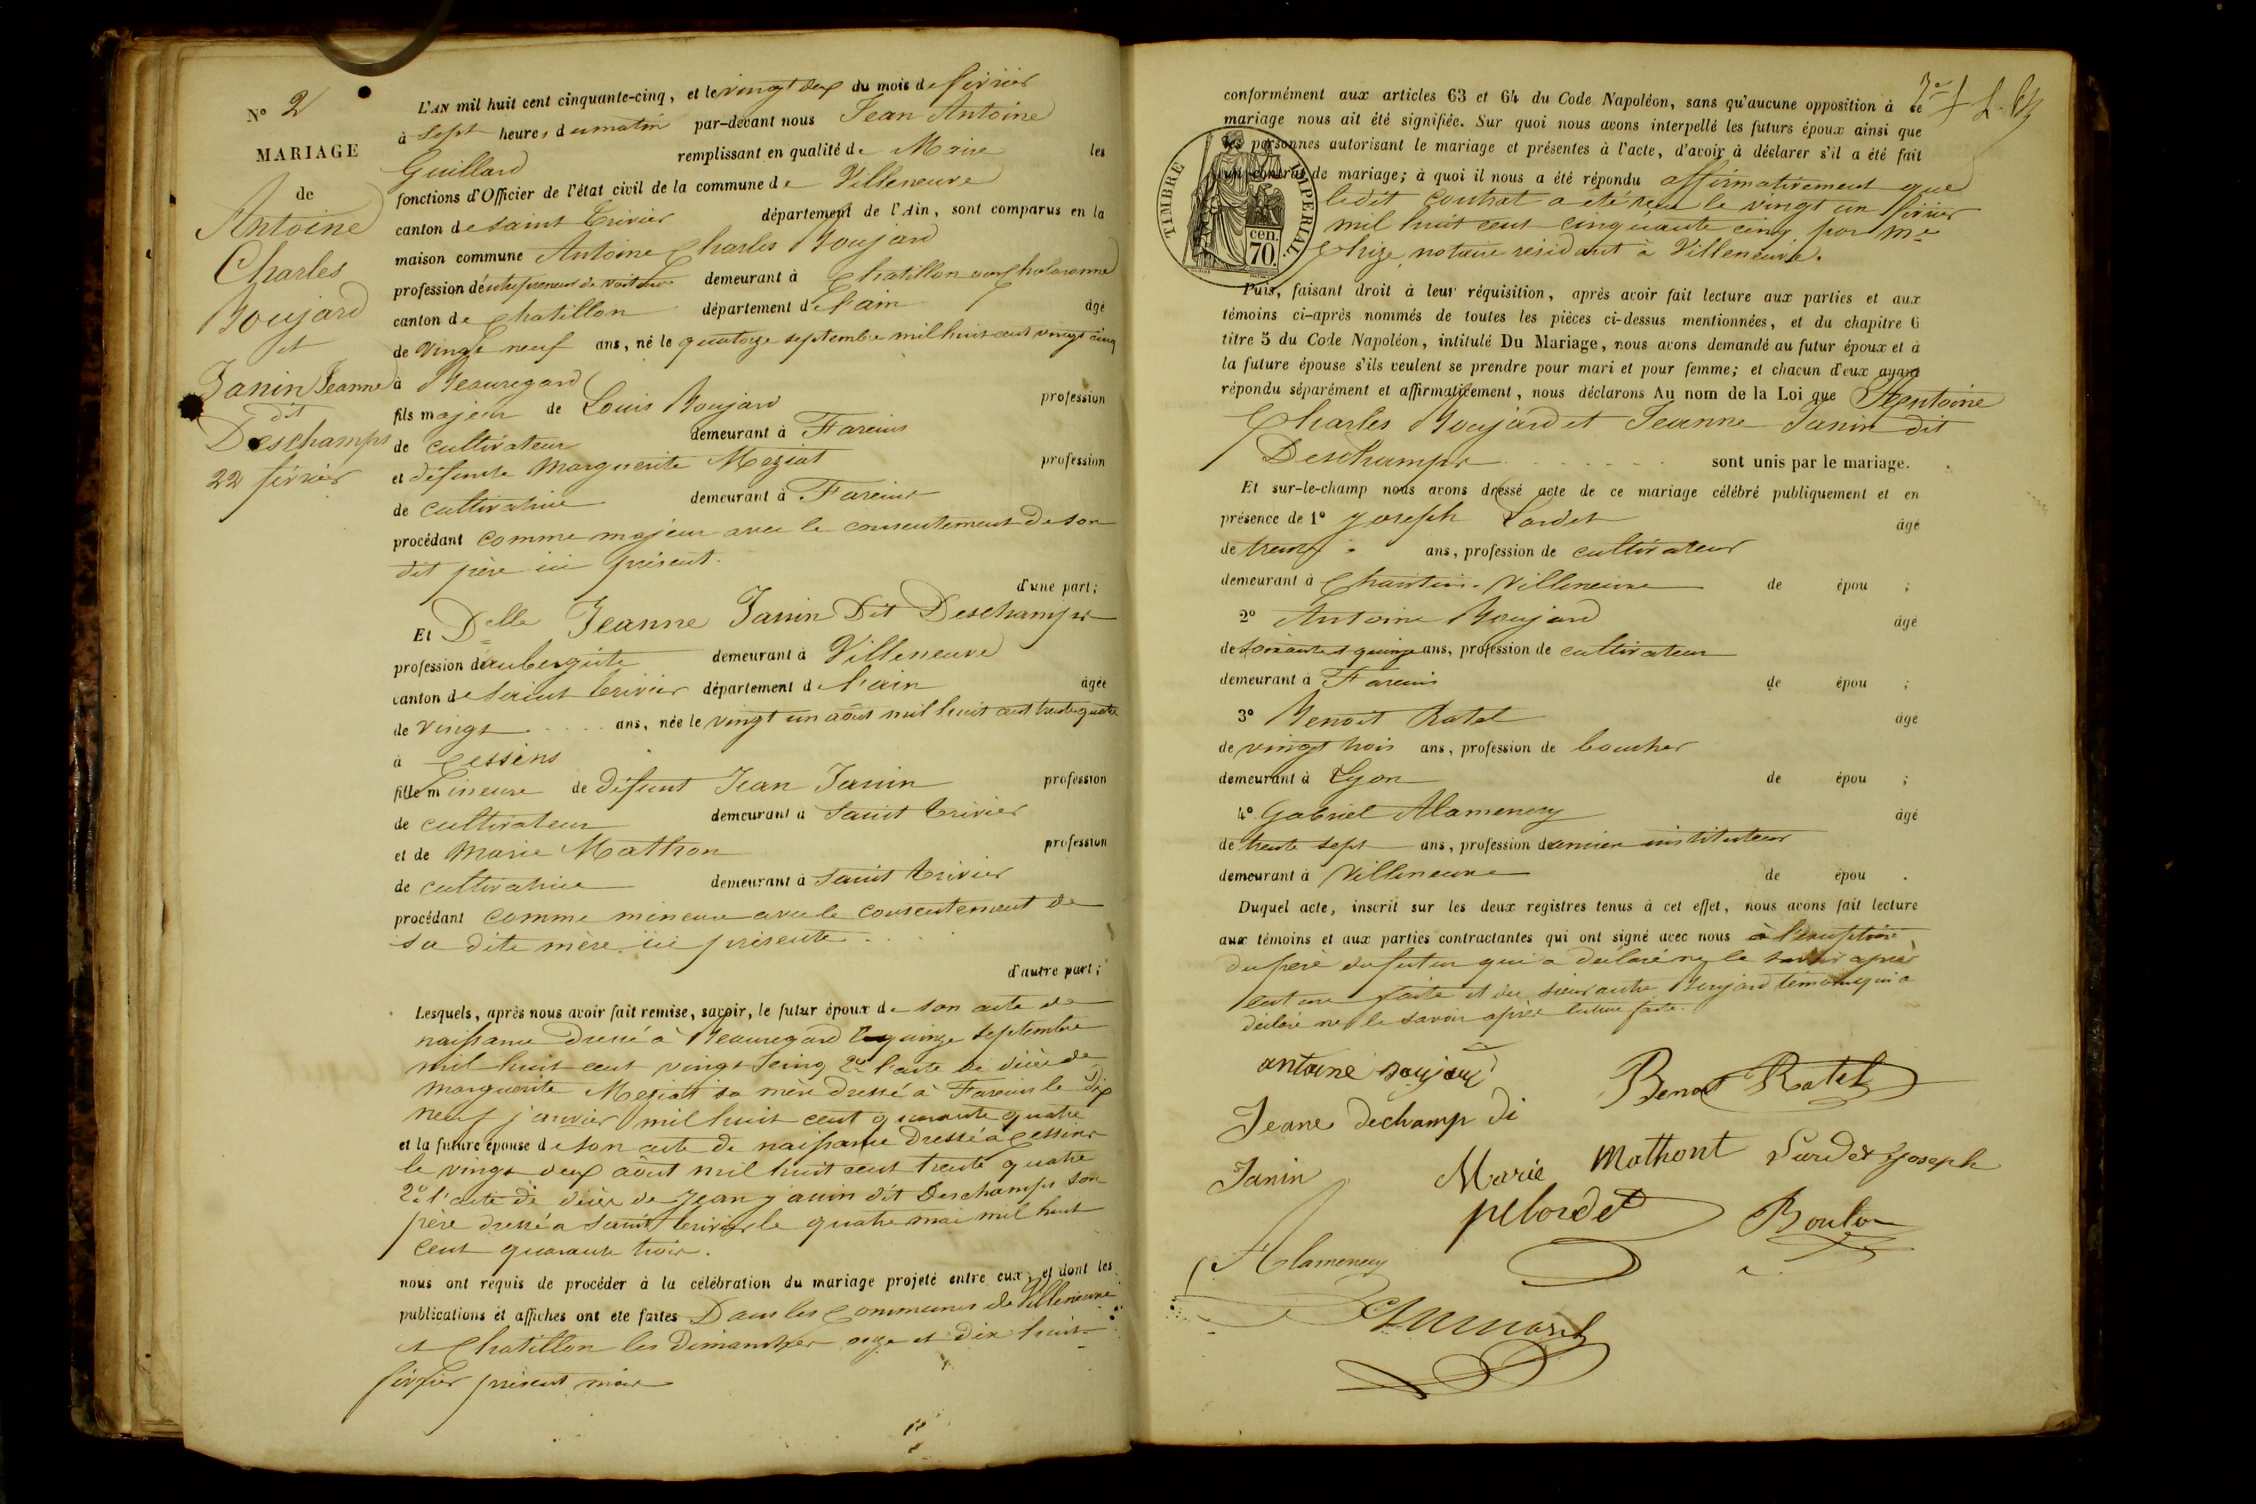 N° 2
MARIAGE
de
Antoine
Charles
Boujard
et
Janin Jeanne
dit
Deschamps
22 février
L'AN mil huit cent cinquante-cinq, et le vingt deux du mois de février
à sept heures du matin par-devant nous Jean Antoine
Guillard remplissant en qualité de Maire les
fonctions d'Officier de l'état civil de la commune de Villeneuve
canton de saint trivier département de l'Ain, sont comparus en la
maison commune Antoine Charles Boujard
profession d'entrepreneur de voiture demeurant à Chatillon sur Chalaronne
canton de Chatillon département de l'ain âgé
de vingt neuf ans, né le quatorze septembre mil huit cent vingt cinq
à Beauregard
fils majeur de Louis Boujard profession
de cultivateur demeurant à Fareins
et défunte Marguerite Meziat profession
de cultivatrice demeurant à Fareins
procédant comme majeur avec le consentement de son
dit père ici présent.
d'une part;
Et Delle Jeanne Janin Dit Deschamps
profession d'aubergiste demeurant à Villeneuve
canton de saint trivier département de l'ain âgée
de vingt ans, née le vingt un août mil huit cent trente quatre
à Cessins
fille mineure de défunt Jean Janin profession
de cultivateur demeurant à Saint trivier
et de Marie Mathon profession
de cultivatrice demeurant à Saint trivier
procédant comme mineure avec le consentement de
sa dite mère ici présente.
d'autre part;
Lesquels, après nous avoir fait remise, savoir, le futur époux de son acte de
naissance dressé à Beauregard le quinze septembre
mil huit cent vingt cinq 2° l'acte de décès de
Marguerite Meziat sa mère dressé à Fareins le dix
neuf janvier mil huit cent quarante quatre
et la future épouse de son acte de naissance dressé à Cessins
le vingt deux août mil huit cent trente quatre
2° l'acte de décès de Jean janin dit Deschamps son
père dressé a saint trivier le quatre mai mil huit
cent quarante trois.
nous ont requis de procéder à la célébration du mariage projeté entre eux, et dont les
publications et affiches ont été faites Dans les Communes de Villeneuve
et Chatillon les Dimanches onze et dix huit
février présent mois
conformément aux articles 63 et 64 du Code Napoléon, sans qu'aucune opposition à ce
mariage nous ait été signifiée. Sur quoi nous avons interpellé les futurs époux ainsi que
les personnes autorisant le mariage et présentes à l'acte, d'avoir à déclarer s'il a été fait
un contrat de mariage; à quoi il nous a été répondu affirmativement que
ledit contrat a été reçu le vingt un février
mil huit cent cinquante cinq par Me
notaire résidant à Villeneuve.
TIMBRE IMPERIAL.
cen.
70.
Puis, faisant droit à leur réquisition, après avoir fait lecture aux parties et aux
témoins ci-après nommés de toutes les pièces ci-dessus mentionnées, et du chapitre 6
titre 5 du Code Napoléon, intitulé Du Mariage, nous avons demandé au futur époux et à
la future épouse s'ils veulent se prendre pour mari et pour femme; et chacun d'eux ayant
répondu séparément et affirmativement, nous déclarons Au nom de la Loi que Antoine
Charles Boujard et Jeanne Janin dit
Deschamps sont unis par le mariage.
Et sur-le-champ nous avons dressé acte de ce mariage célébré publiquement et en
présence de 1° Joseph Lardet âgé
de trente ans, profession de cultivateur
demeurant à Chaneins-Villeneuve de épou ;
2° Antoine Boujard âgé
de soixante quinze ans, profession de cultivateur
demeurant à Fareins de épou ;
3° Benoit Ratel âgé
de vingt trois ans, profession de boucher
demeurant à Lyon de épou ;
4° Gabriel Alamercery âgé
de trente sept ans, profession d'ancien instituteur
demeurant à Villeneuve de épou .
Duquel acte, inscrit sur les deux registres tenus à cet effet, nous avons fait lecture
aux témoins et aux parties contractantes qui ont signé avec nous à l'exception
du père du futur qui a déclaré ne le savoir après
lecture faite et du sieur autre Boujard témoin qui a
déclaré ne le savoir après lecture faite.
antoine Boujard
Benoit Ratel
Jeane dechamp di
Janin
Marie Mathont
Lardet Joseph
Boulon